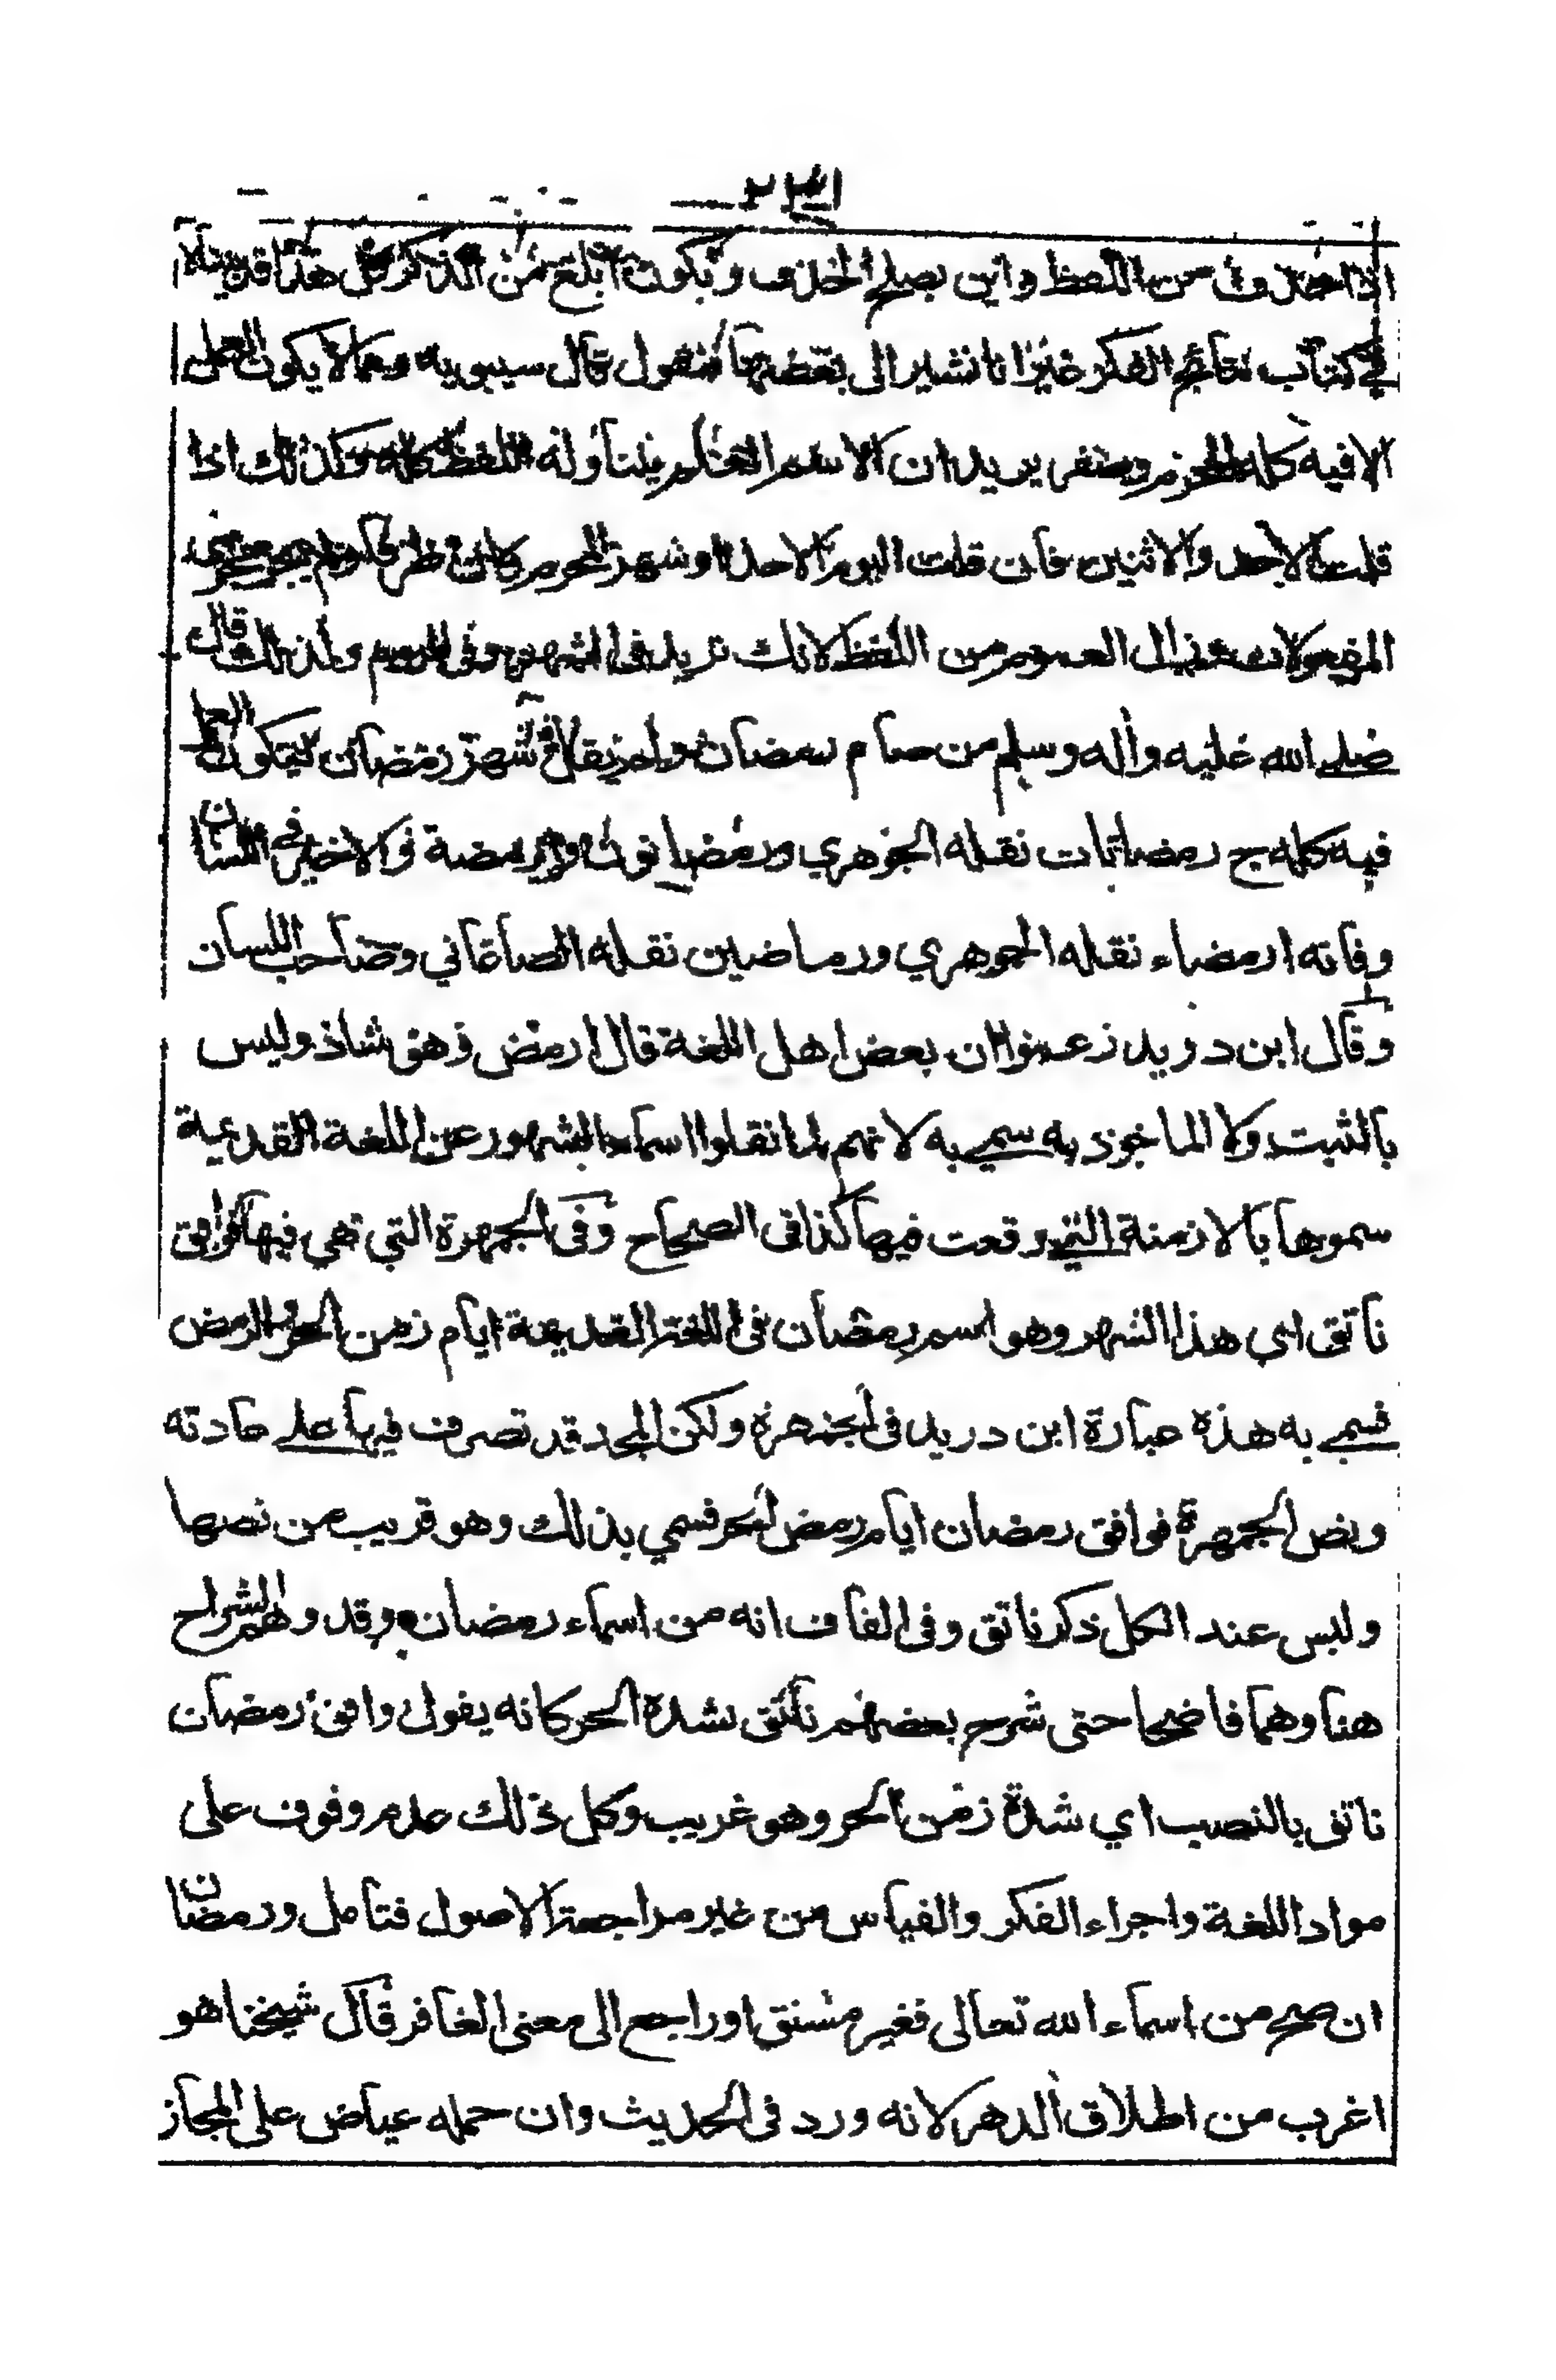 ٢٣١
اذا حذف من اللفظ واين يصلح الحذف ويكون ابلغ من الذكر كل هذا قد بيناه
في كتاب نتائج الفكر غيرانا نشير الى بعضها فنقول قال سيبويه ومما لا يكون العمل
الا فيه كله المحرم وصفر يريدان الاسم العلم يتناوله اللفظ كله وكذلك اذا
قلت الاحد والاثنين فان قلت اليوم الاحد او شهر المحرم كان ظرفا ولم يجر مجرى
المفعولات وزال العموم من اللفظ لانك تريد فى الشهر وفى اليوم ولذلك قال
صلى الله عليه واله وسلم من صام رمضان ولم يقل شهر رمضان ليكون العمل
فيه كله ج رمضانات نقله الجوهري ورمضانون وارمضة والاخير فى اللسان
وفاته ارمضاء نقله الجوهري ورماضين نقله الصاغاني وصاحب اللسان
وقال ابن دريد زعموا ان بعض اهل اللغة قال ارمض وهو شاذ وليس
بالثبت ولا الماخوذ به سمي به لانهم لما نقلوا اسماء الشهور عن اللغة القديمة
سموها بالازمنة التي وقعت فيها كذا فى الصحاح وفى الجمهرة التي هي فيها فوافق
ناتق اي هذا الشهر وهو اسم رمضان فى اللغة القديمة ايام زمن الحر والرمض
فسمي به هذة عبارة ابن دريد فى الجمهرة ولكن المجد قد تصرف فيها على عادته
ونص الجمهرة فوافق رمضان ايام رمض الحر فسمي بذلك وهو قريب من نصها
وليس عند الكل ذكر ناتق وفى القاف انه من اسماء رمضان وقد وهم الشراح
هنا وهما فاضحا حتى شرح بعضهم ناتق بشدة الحر كانه يقول وافق رمضان
ناتق بالنصب اي شدة زمن الحر وهو غريب وكل ذلك عدم وقوف على
مواد اللغة واجراء الفكر والقياس من غير مراجعة الاصول فتامل ورمضان
ان صح من اسماء الله تعالى فغير مشتق او راجع الى معنى الغافر قال شيخنا هو
اغرب من اطلاق الدهر لانه ورد فى الحديث وان حمله عياض على المجاز